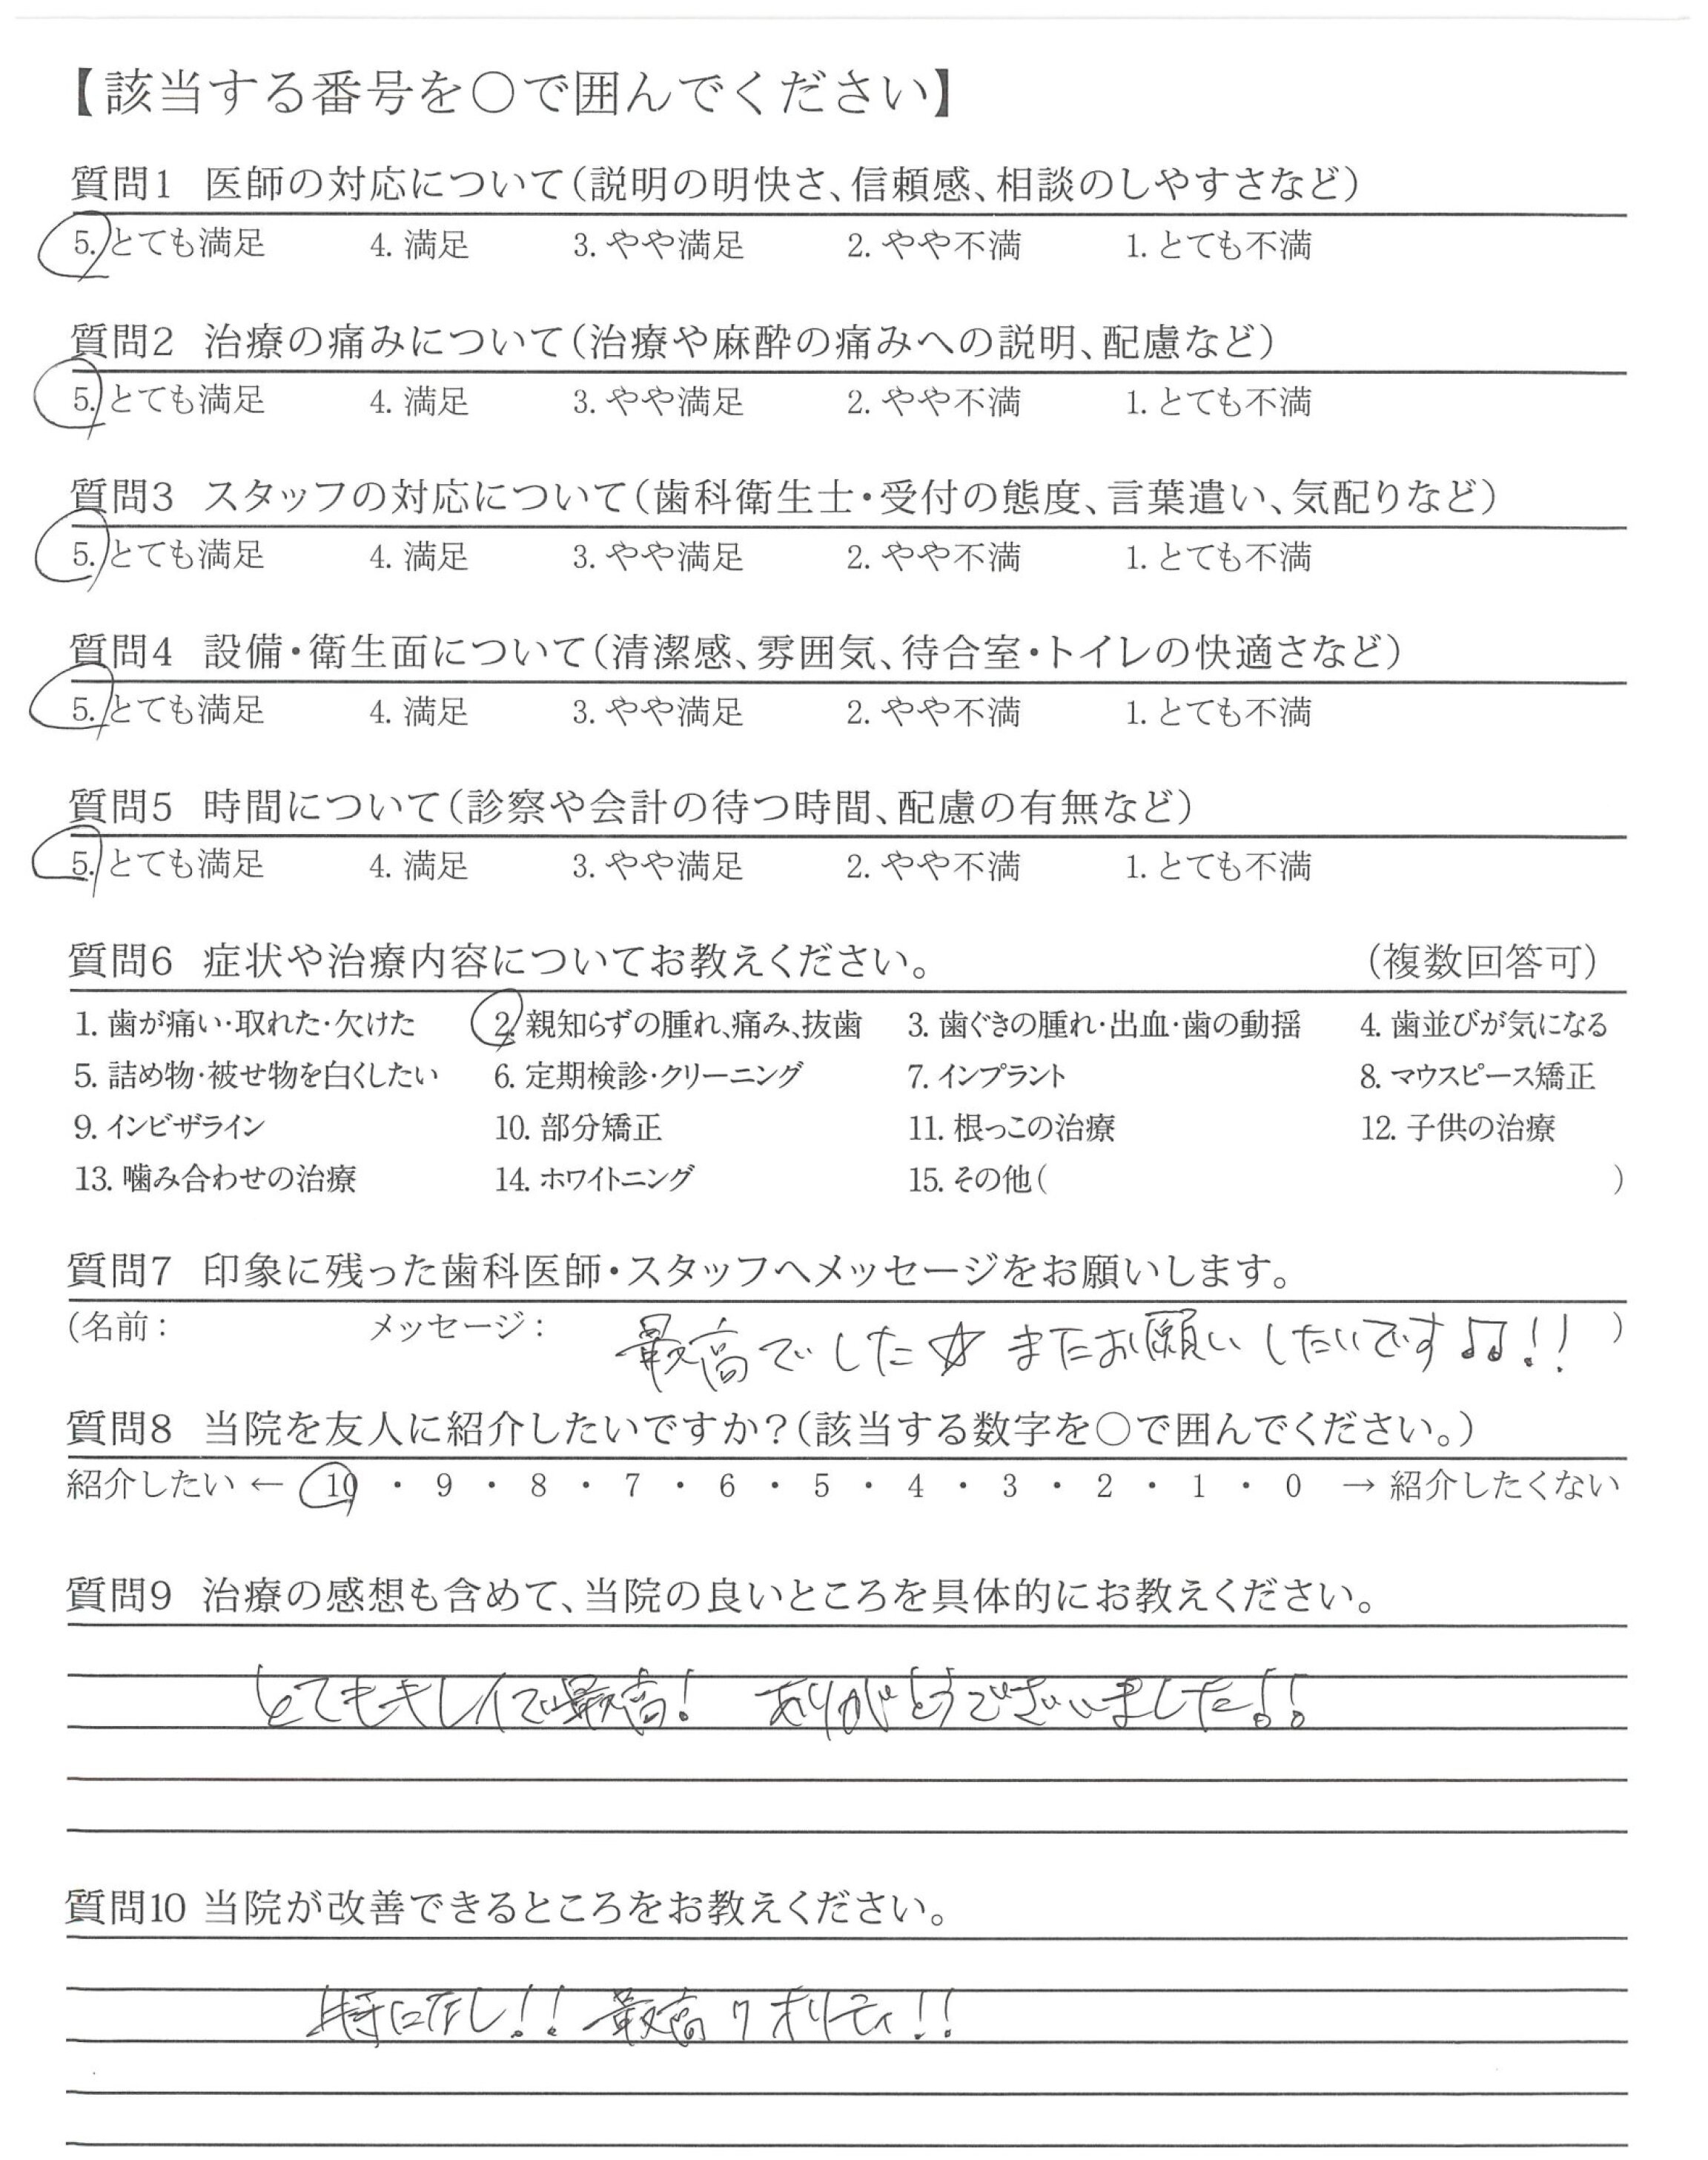 【該当する番号を○で囲んでください】
質問1 医師の対応について(説明の明快さ、信頼感、相談のしやすさなど)
5. とても満足 4. 満足 3. やや満足 2. やや不満 1. とても不満
質問2 治療の痛みについて(治療や麻酔の痛みへの説明、配慮など)
5. とても満足 4. 満足 3. やや満足 2. やや不満 1. とても不満
質問3 スタッフの対応について(歯科衛生士・受付の態度、言葉遣い、気配りなど)
5. とても満足 4. 満足 3. やや満足 2. やや不満 1. とても不満
質問4 設備・衛生面について(清潔感、雰囲気、待合室・トイレの快適さなど)
5. とても満足 4. 満足 3. やや満足 2. やや不満 1. とても不満
質問5 時間について(診察や会計の待つ時間、配慮の有無など)
5. とても満足 4. 満足 3. やや満足 2. やや不満 1. とても不満
質問6 症状や治療内容についてお教えください。 (複数回答可)
1. 歯が痛い・取れた・欠けた 2. 親知らずの腫れ、痛み、抜歯 3. 歯ぐきの腫れ・出血・歯の動揺 4. 歯並びが気になる
5. 詰め物・被せ物を白くしたい 6. 定期検診・クリーニング 7. インプラント 8. マウスピース矯正
9. インビザライン 10. 部分矯正 11. 根っこの治療 12. 子供の治療
13. 噛み合わせの治療 14. ホワイトニング 15. その他( )
質問7 印象に残った歯科医師・スタッフへメッセージをお願いします。
(名前: メッセージ: 最高でした☆ またお願いしたいです♫♪!! )
質問8 当院を友人に紹介したいですか?(該当する数字を○で囲んでください。)
紹介したい ← 10 ・ 9 ・ 8 ・ 7 ・ 6 ・ 5 ・ 4 ・ 3 ・ 2 ・ 1 ・ 0 → 紹介したくない
質問9 治療の感想も含めて、当院の良いところを具体的にお教えください。
とてもキレイで最高! ありがとうございました!!
質問10 当院が改善できるところをお教えください。
特になし!! 最高クオリティ!!